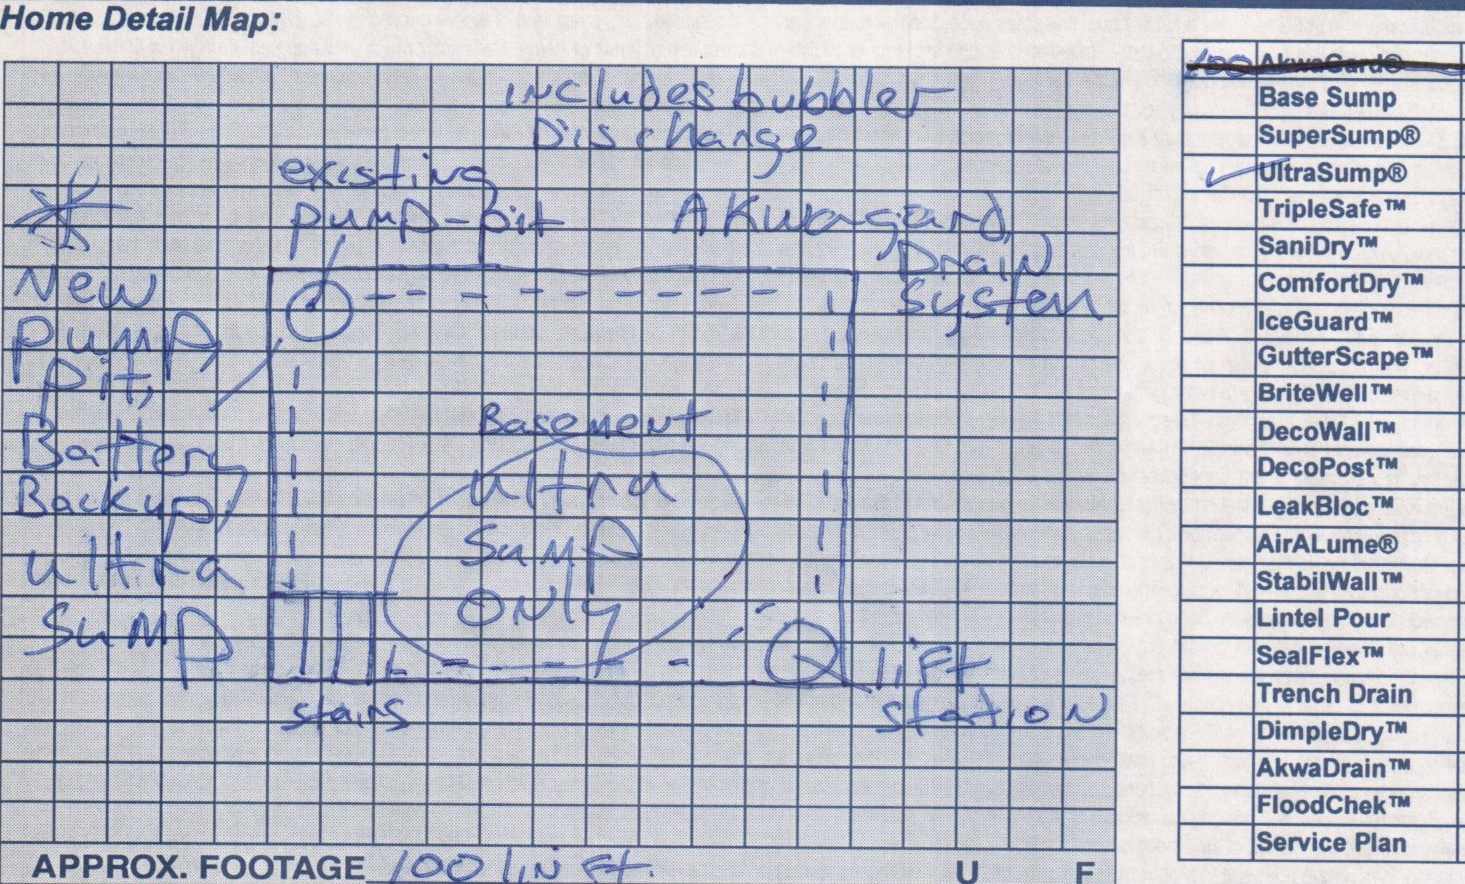 Home Detail Map:
includes bubbler
Discharge
existing
pump-pit
AKwagard
Drain
system
*
New
pump,
pit,
Battery
Backup,
ultra
sump
Basement
ultra
sump
only
lift
station
stairs
APPROX. FOOTAGE 100 lin ft.
U F
100 AkwaGard®
Base Sump
SuperSump®
✓ UltraSump®
TripleSafe™
SaniDry™
ComfortDry™
IceGuard™
GutterScape™
BriteWell™
DecoWall™
DecoPost™
LeakBloc™
AirALume®
StabilWall™
Lintel Pour
SealFlex™
Trench Drain
DimpleDry™
AkwaDrain™
FloodChek™
Service Plan